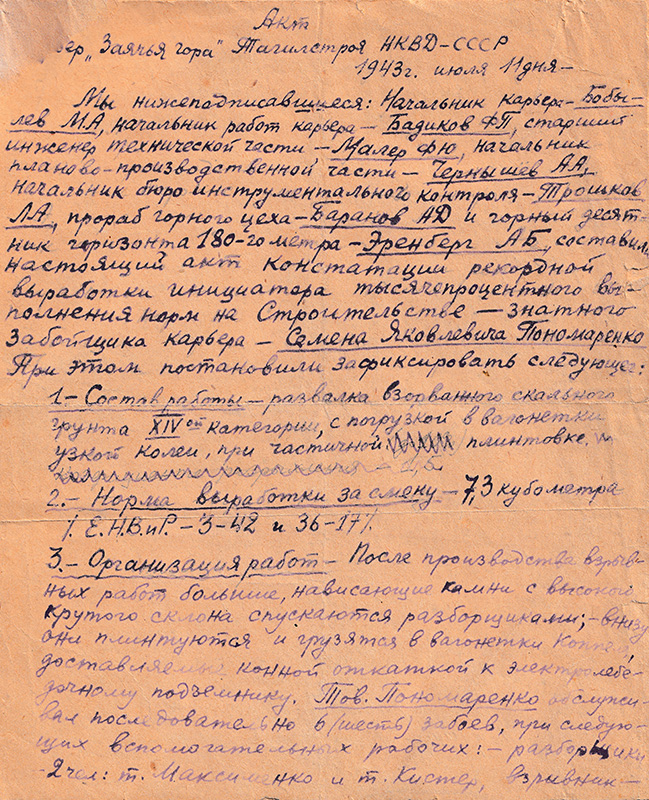 Акт
ер „Заячья гора" Тагилстроя НКВД-СССР
1943г. июля 11 дня—
Мы нижеподписавшиеся: Начальник карьера- Бобы-
лев МА, начальник работ карьера- Бадиков ФП, старший
инженер технической части - Малер ФЮ, начальник
планово-производственной части - Чернышев АА,
начальник бюро инструментального контроля-Трошков
ЛА, прораб горного цеха-Баранов НД и горный десят-
ник горизонта 180-го метра - Эренберг АБ, составили
настоящий акт констатации рекордной
выработки инициатора тысячепроцентного вы-
полнения норм на Строительстве - знатного
забойщика карьера - Семена Яковлевича Пономаренко
При этом постановили зафиксировать следующее:
1- Состав работы - развалка взорванного скального
грунта XIVой категории, с погрузкой в вагонетки
узкой колеи, при частичной плинтовке.
2.- Норма выработки за смену - 7,3 кубометра
/. Е.Н.В.иР. - 3-42 и 36-17/.
3.- Организация работ - После производства взрыв-
ных работ большие, нависающие камни с высокой
крутого склона спускаются разборщиками; - внизу
они плинтуются и грузятся в вагонетки
доставляемые конной откаткой к электролебе-
дочному подъемнику. Тов. Пономаренко обслужи-
вал последовательно 6 (шесть) забоев, при следую-
щих вспомогательных рабочих: - разборщики
-2чел: т. Максименко и т. Кистер, взрывник-